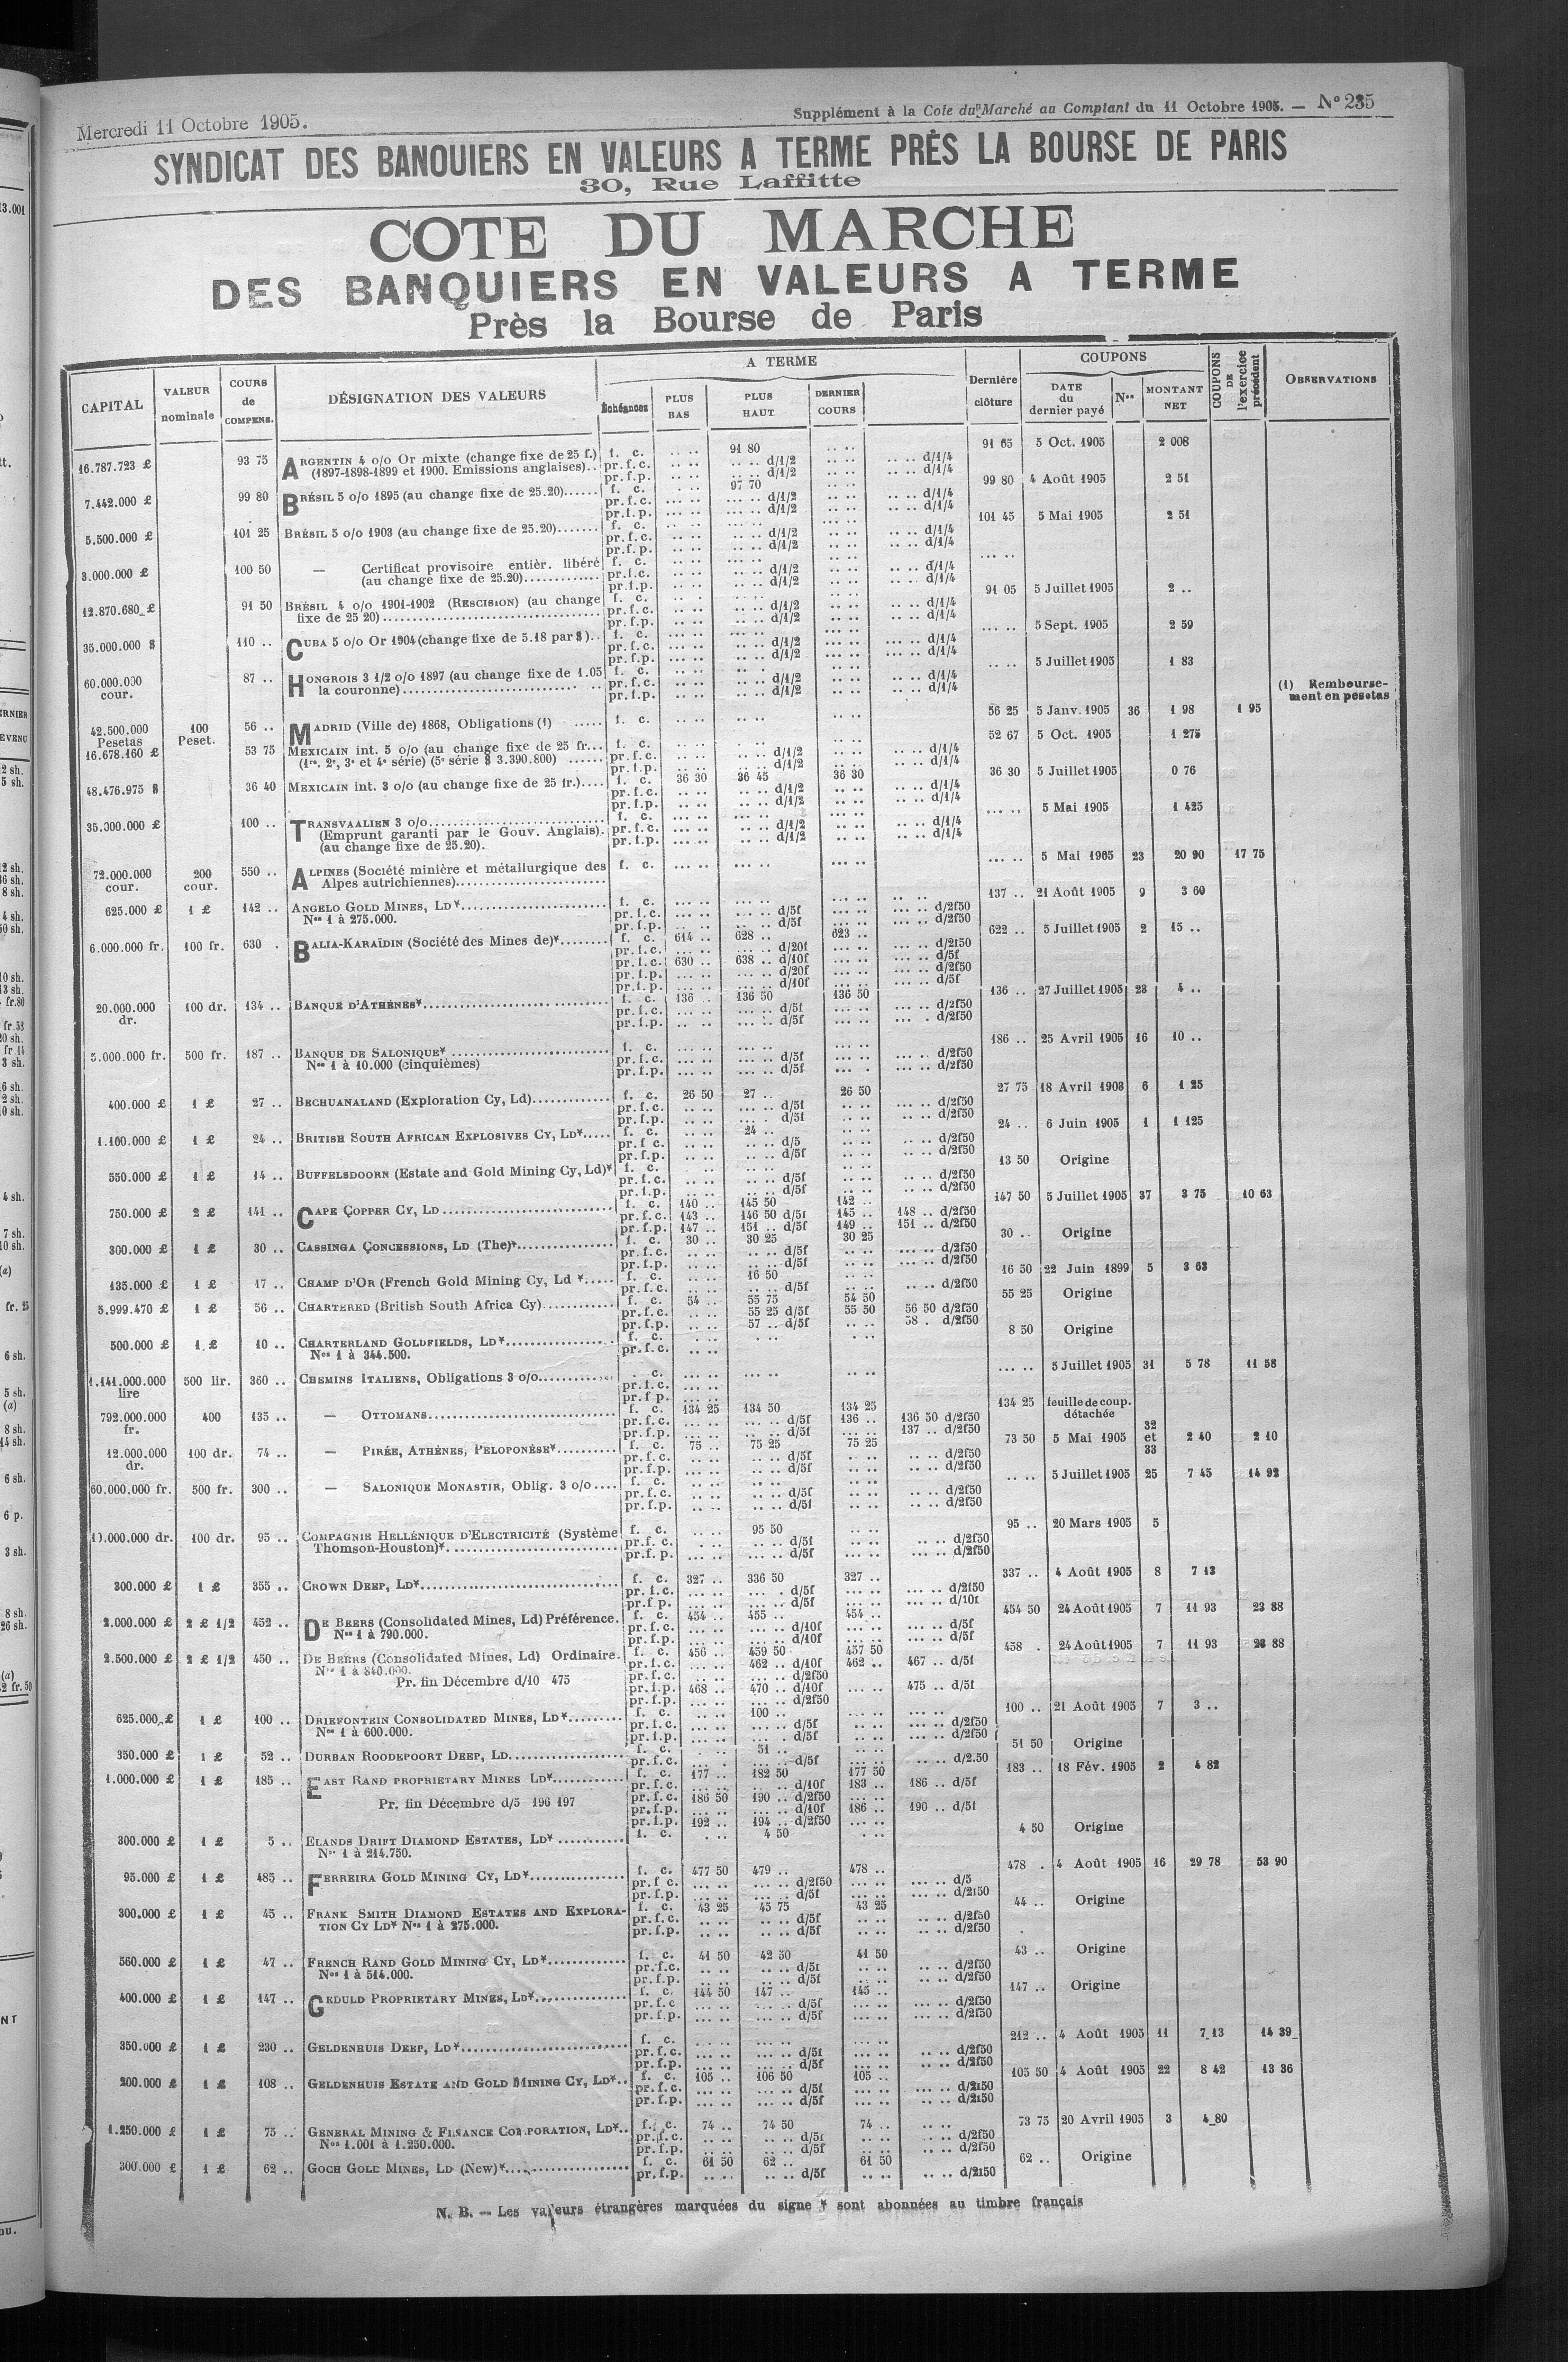 Mercredi 11 Octobre 1905.
Supplément à la Cote du Marché au Comptant du 11 Octobre 1905. — No 235
SYNDICAT DES BANQUIERS EN VALEURS A TERME PRÈS LA BOURSE DE PARIS
30, Rue Laffitte
COTE DU MARCHE
DES BANQUIERS EN VALEURS A TERME
Près la Bourse de Paris
CAPITAL VALEUR nominale COURS de COMPENS. DÉSIGNATION DES VALEURS A TERME Échéances PLUS BAS PLUS HAUT DERNIER COURS Dernière clôture COUPONS DATE du dernier payé Nos MONTANT NET COUPONS DE l'exercice précédent OBSERVATIONS
16.787.723 £ 93 75 ARGENTIN 4 o/o Or mixte (change fixe de 25 f.) f. c. 91 80 91 65 5 Oct. 1905 2 008
(1897-1898-1899 et 1900. Emissions anglaises).. pr.f.c. d/1/2 d/1/4
pr.f.p. d/1/2 d/1/4
7.442.000 £ 99 80 BRÉSIL 5 o/o 1895 (au change fixe de 25.20)...... f. c. 97 70 99 80 4 Août 1905 2 51
pr.f.c. d/1/2 d/1/4
pr.f.p. d/1/2 d/1/4
5.500.000 £ 101 25 BRÉSIL 5 o/o 1903 (au change fixe de 25.20)....... f. c. 101 45 5 Mai 1905 2 51
pr.f.c. d/1/2 d/1/4
pr.f.p. d/1/2 d/1/4
3.000.000 £ 100 50 — Certificat provisoire entièr. libéré f. c.
(au change fixe de 25.20)............ pr.f.c. d/1/2 d/1/4
pr.f.p. d/1/2 d/1/4
12.870.680 £ 91 50 BRÉSIL 4 o/o 1901-1902 (RESCISION) (au change f. c. 91 05 5 Juillet 1905 2 ..
fixe de 25 20).................... pr.f.c. d/1/2 d/1/4
pr.f.p. d/1/2 d/1/4
35.000.000 $ 110 .. CUBA 5 o/o Or 1904 (change fixe de 5.18 par $).. f. c. 5 Sept. 1905 2 59
pr.f.c. d/1/2 d/1/4
pr.f.p. d/1/2 d/1/4
60.000.000 cour. 87 .. HONGROIS 3 1/2 o/o 1897 (au change fixe de 1.05 f. c. 5 Juillet 1905 1 83
la couronne).................... pr.f.c. d/1/2 d/1/4
pr.f.p. d/1/2 d/1/4
(1) Remboursement en pesetas
42.500.000 Pesetas 100 Peset. 56 .. MADRID (Ville de) 1868, Obligations (1) ..... f. c. 56 25 5 Janv. 1905 36 1 98 1 95
16.678.160 £ 53 75 MEXICAIN int. 5 o/o (au change fixe de 25 fr... f. c. 52 67 5 Oct. 1905 1 275
(1re. 2e, 3e et 4e série) (5e série $ 3.390.800) ...... pr.f.c. d/1/2 d/1/4
pr.f.p. d/1/2 d/1/4
48.476.975 $ 36 40 MEXICAIN int. 3 o/o (au change fixe de 25 fr.).... f. c. 36 30 36 45 36 30 36 30 5 Juillet 1905 0 76
pr.f.c. d/1/2 d/1/4
pr.f.p. d/1/2 d/1/4
35.000.000 £ 100 .. TRANSVAALIEN 3 o/o.................... f. c. 5 Mai 1905 1 425
(Emprunt garanti par le Gouv. Anglais). pr.f.c. d/1/2 d/1/4
(au change fixe de 25.20). pr.f.p. d/1/2 d/1/4
72.000.000 cour. 200 cour. 550 .. ALPINES (Société minière et métallurgique des f. c. 5 Mai 1905 23 20 90 17 75
Alpes autrichiennes)....................
625.000 £ 1 £ 142 .. ANGELO GOLD MINES, LD*.................... f. c. 137 .. 21 Août 1905 9 3 60
Nos 1 à 275.000. pr.f.c. d/5f d/2f50
pr.f.p. d/5f d/2f50
6.000.000 fr. 100 fr. 630 . BALIA-KARAÏDIN (Société des Mines de)*........ f. c. 614 .. 628 .. 623 .. 622 .. 5 Juillet 1905 2 15 ..
pr.f.c. d/20f d/2f50
pr.f.c. 630 .. 638 .. d/10f d/5f
pr.f.p. d/20f d/2f50
pr.f.p. d/10f d/5f
20.000.000 dr. 100 dr. 134 .. BANQUE D'ATHÈNES*.................... f. c. 136 .. 136 50 136 50 136 .. 27 Juillet 1905 23 4 ..
pr.f.c. d/5f d/2f50
pr.f.p. d/5f d/2f50
5.000.000 fr. 500 fr. 187 .. BANQUE DE SALONIQUE* .................... f. c. 186 .. 25 Avril 1905 16 10 ..
Nos 1 à 10.000 (cinquièmes) pr.f.c. d/5f d/2f50
pr.f.p. d/5f d/2f50
400.000 £ 1 £ 27 .. BECHUANALAND (Exploration Cy, Ld)............ f. c. 26 50 27 .. 26 50 27 75 18 Avril 1903 6 1 25
pr.f.c. d/5f d/2f50
pr.f.p. d/5f d/2f50
1.100.000 £ 1 £ 24 .. BRITISH SOUTH AFRICAN EXPLOSIVES CY, LD*..... f. c. 24 .. 24 .. 6 Juin 1905 1 1 125
pr.f.c. d/5 d/2f50
pr.f.p. d/5f d/2f50
550.000 £ 1 £ 14 .. BUFFELSDOORN (Estate and Gold Mining Cy, Ld)* f. c. 13 50 Origine
pr.f.c. d/5f d/2f50
pr.f.p. d/5f d/2f50
750.000 £ 2 £ 141 .. CAPE COPPER CY, LD .................... f. c. 140 .. 145 50 142 .. 147 50 5 Juillet 1905 37 3 75 10 63
pr.f.c. 143 .. 146 50 d/5f 145 .. 148 .. d/2f50
pr.f.p. 147 .. 151 .. d/5f 149 .. 151 .. d/2f50
300.000 £ 1 £ 30 .. CASSINGA CONCESSIONS, LD (The)*............ f. c. 30 .. 30 25 30 25 30 .. Origine
pr.f.c. d/5f d/2f50
pr.f.p. d/5f d/2f50
135.000 £ 1 £ 17 .. CHAMP D'OR (French Gold Mining Cy, Ld *..... f. c. 16 50 16 50 22 Juin 1899 5 3 63
pr.f.c. d/5f d/2f50
5.999.470 £ 1 £ 56 .. CHARTERED (British South Africa Cy)............ f. c. 54 .. 55 75 54 50 55 25 Origine
pr.f.c. 55 25 d/5f 55 50 56 50 d/2f50
pr.f.p. 57 .. d/5f 58 . d/2f50
500.000 £ 1 £ 10 .. CHARTERLAND GOLDFIELDS, LD*................ f. c. 8 50 Origine
Nos 1 à 344.500. pr.f.c.
1.141.000.000 lire 500 lir. 360 .. CHEMINS ITALIENS, Obligations 3 o/o............ f. c. 5 Juillet 1905 31 5 78 11 58
pr.f.c.
pr.f.p.
792.000.000 fr. 400 135 .. — OTTOMANS.................... f. c. 134 25 134 50 134 25 134 25 feuille de coup. détachée
pr.f.c. d/5f 136 .. 136 50 d/2f50
pr.f.p. d/5f 137 .. d/2f50
12.000.000 dr. 100 dr. 74 .. — PIRÉE, ATHÈNES, PELOPONÈSE*.......... f. c. 75 .. 75 25 75 25 73 50 5 Mai 1905 32 et 33 2 40 2 10
pr.f.c. d/5f d/2f50
pr.f.p. d/5f d/2f50
60.000.000 fr. 500 fr. 300 .. — SALONIQUE MONASTIR, Oblig. 3 o/o.... f. c. 5 Juillet 1905 25 7 45 14 92
pr.f.c. d/5f d/2f50
pr.f.p. d/5f d/2f50
10.000.000 dr. 100 dr. 95 .. COMPAGNIE HELLÉNIQUE D'ELECTRICITÉ (Système f. c. 95 50 95 .. 20 Mars 1905 5
Thomson-Houston)*.................... pr.f.c. d/5f d/2f50
pr.f.p. d/5f d/2f50
300.000 £ 1 £ 355 .. CROWN DEEP, LD*.................... f. c. 327 .. 336 50 327 .. 337 .. 4 Août 1905 8 7 13
pr.f.c. d/5f d/2f50
pr.f.p. d/5f d/10f
2.000.000 £ 2 £ 1/2 452 .. DE BEERS (Consolidated Mines, Ld) Préférence. f. c. 454 .. 455 .. 454 .. 454 50 24 Août 1905 7 11 93 23 88
Nos 1 à 790.000. pr.f.c. d/10f d/5f
pr.f.p. d/10f d/5f
2.500.000 £ 2 £ 1/2 450 .. DE BEERS (Consolidated Mines, Ld) Ordinaire. f. c. 456 .. 459 50 457 50 458 . 24 Août 1905 7 11 93 23 88
Nos 1 à 840.000. pr.f.c. 462 .. d/10f 462 .. 467 .. d/5f
Pr. fin Décembre d/10 475 pr.f.c. d/2f50
pr.f.p. 468 .. 470 .. d/10f 475 .. d/5f
pr.f.p. d/2f50
625.000 £ 1 £ 100 .. DRIEFONTEIN CONSOLIDATED MINES, LD*......... f. c. 100 .. 100 .. 21 Août 1905 7 3 ..
Nos 1 à 600.000. pr.f.c. d/5f d/2f50
pr.f.p. d/5f d/2f50
350.000 £ 1 £ 52 .. DURBAN ROODEPOORT DEEP, LD.................... f. c. 51 .. 51 50 Origine
pr.f.c. d/5f d/2.50
1.000.000 £ 1 £ 185 .. EAST RAND PROPRIETARY MINES LD*............ f. c. 177 .. 182 50 177 50 183 .. 18 Fév. 1905 2 4 82
pr.f.c. d/10f 183 .. 186 .. d/5f
Pr. fin Décembre d/5 196 197 pr.f.c. 186 50 190 .. d/2f50
pr.f.p. d/10f 186 .. 190 .. d/5f
pr.f.p. 192 .. 194 .. d/2f50
300.000 £ 1 £ 5 .. ELANDS DRIFT DIAMOND ESTATES, LD* ........... f. c. 4 50 4 50 Origine
Nos 1 à 214.750.
95.000 £ 1 £ 485 .. FERREIRA GOLD MINING CY, LD*................ f. c. 477 50 479 .. 478 .. 478 . 4 Août 1905 16 29 78 53 90
pr.f.c. d/2f50 d/5
pr.f.p. d/5f d/2f50
300.000 £ 1 £ 45 .. FRANK SMITH DIAMOND ESTATES AND EXPLORA- f. c. 43 25 45 75 43 25 44 .. Origine
TION CY LD* Nos 1 à 275.000. pr.f.c. d/5f d/2f50
pr.f.p. d/5f d/2f50
560.000 £ 1 £ 47 .. FRENCH RAND GOLD MINING CY, LD*............ f. c. 41 50 42 50 41 50 43 .. Origine
Nos 1 à 514.000. pr.f.c. d/5f d/2f50
pr.f.p. d/5f d/2f50
400.000 £ 1 £ 147 .. GEDULD PROPRIETARY MINES, LD*.............. f. c. 144 50 147 .. 145 .. 147 .. Origine
pr.f.c d/5f d/2f50
pr.f.p. d/5f d/2f50
350.000 £ 1 £ 230 .. GELDENHUIS DEEP, LD*.................... f. c. 212 .. 4 Août 1905 11 7 13 14 39
pr.f.c. d/5f d/2f50
pr.f.p. d/5f d/2f50
200.000 £ 1 £ 108 .. GELDENHUIS ESTATE AND GOLD MINING CY, LD*.. f. c. 105 .. 106 50 105 .. 105 50 4 Août 1905 22 8 42 13 36
pr.f.c. d/5f d/2f50
pr.f.p. d/5f d/2f50
1.250.000 £ 1 £ 75 .. GENERAL MINING & FINANCE CORPORATION, LD*.. f. c. 74 .. 74 50 74 .. 73 75 20 Avril 1905 3 4 80
Nos 1.001 à 1.250.000. pr.f.c. d/5f d/2f50
pr.f.p. d/5f d/2f50
300.000 £ 1 £ 62 .. GOCH GOLD MINES, LD (New)*.................... f. c. 61 50 62 .. 61 50 62 .. Origine
pr.f.p. d/5f d/2f50
N. B. — Les valeurs étrangères marquées du signe * sont abonnées au timbre français